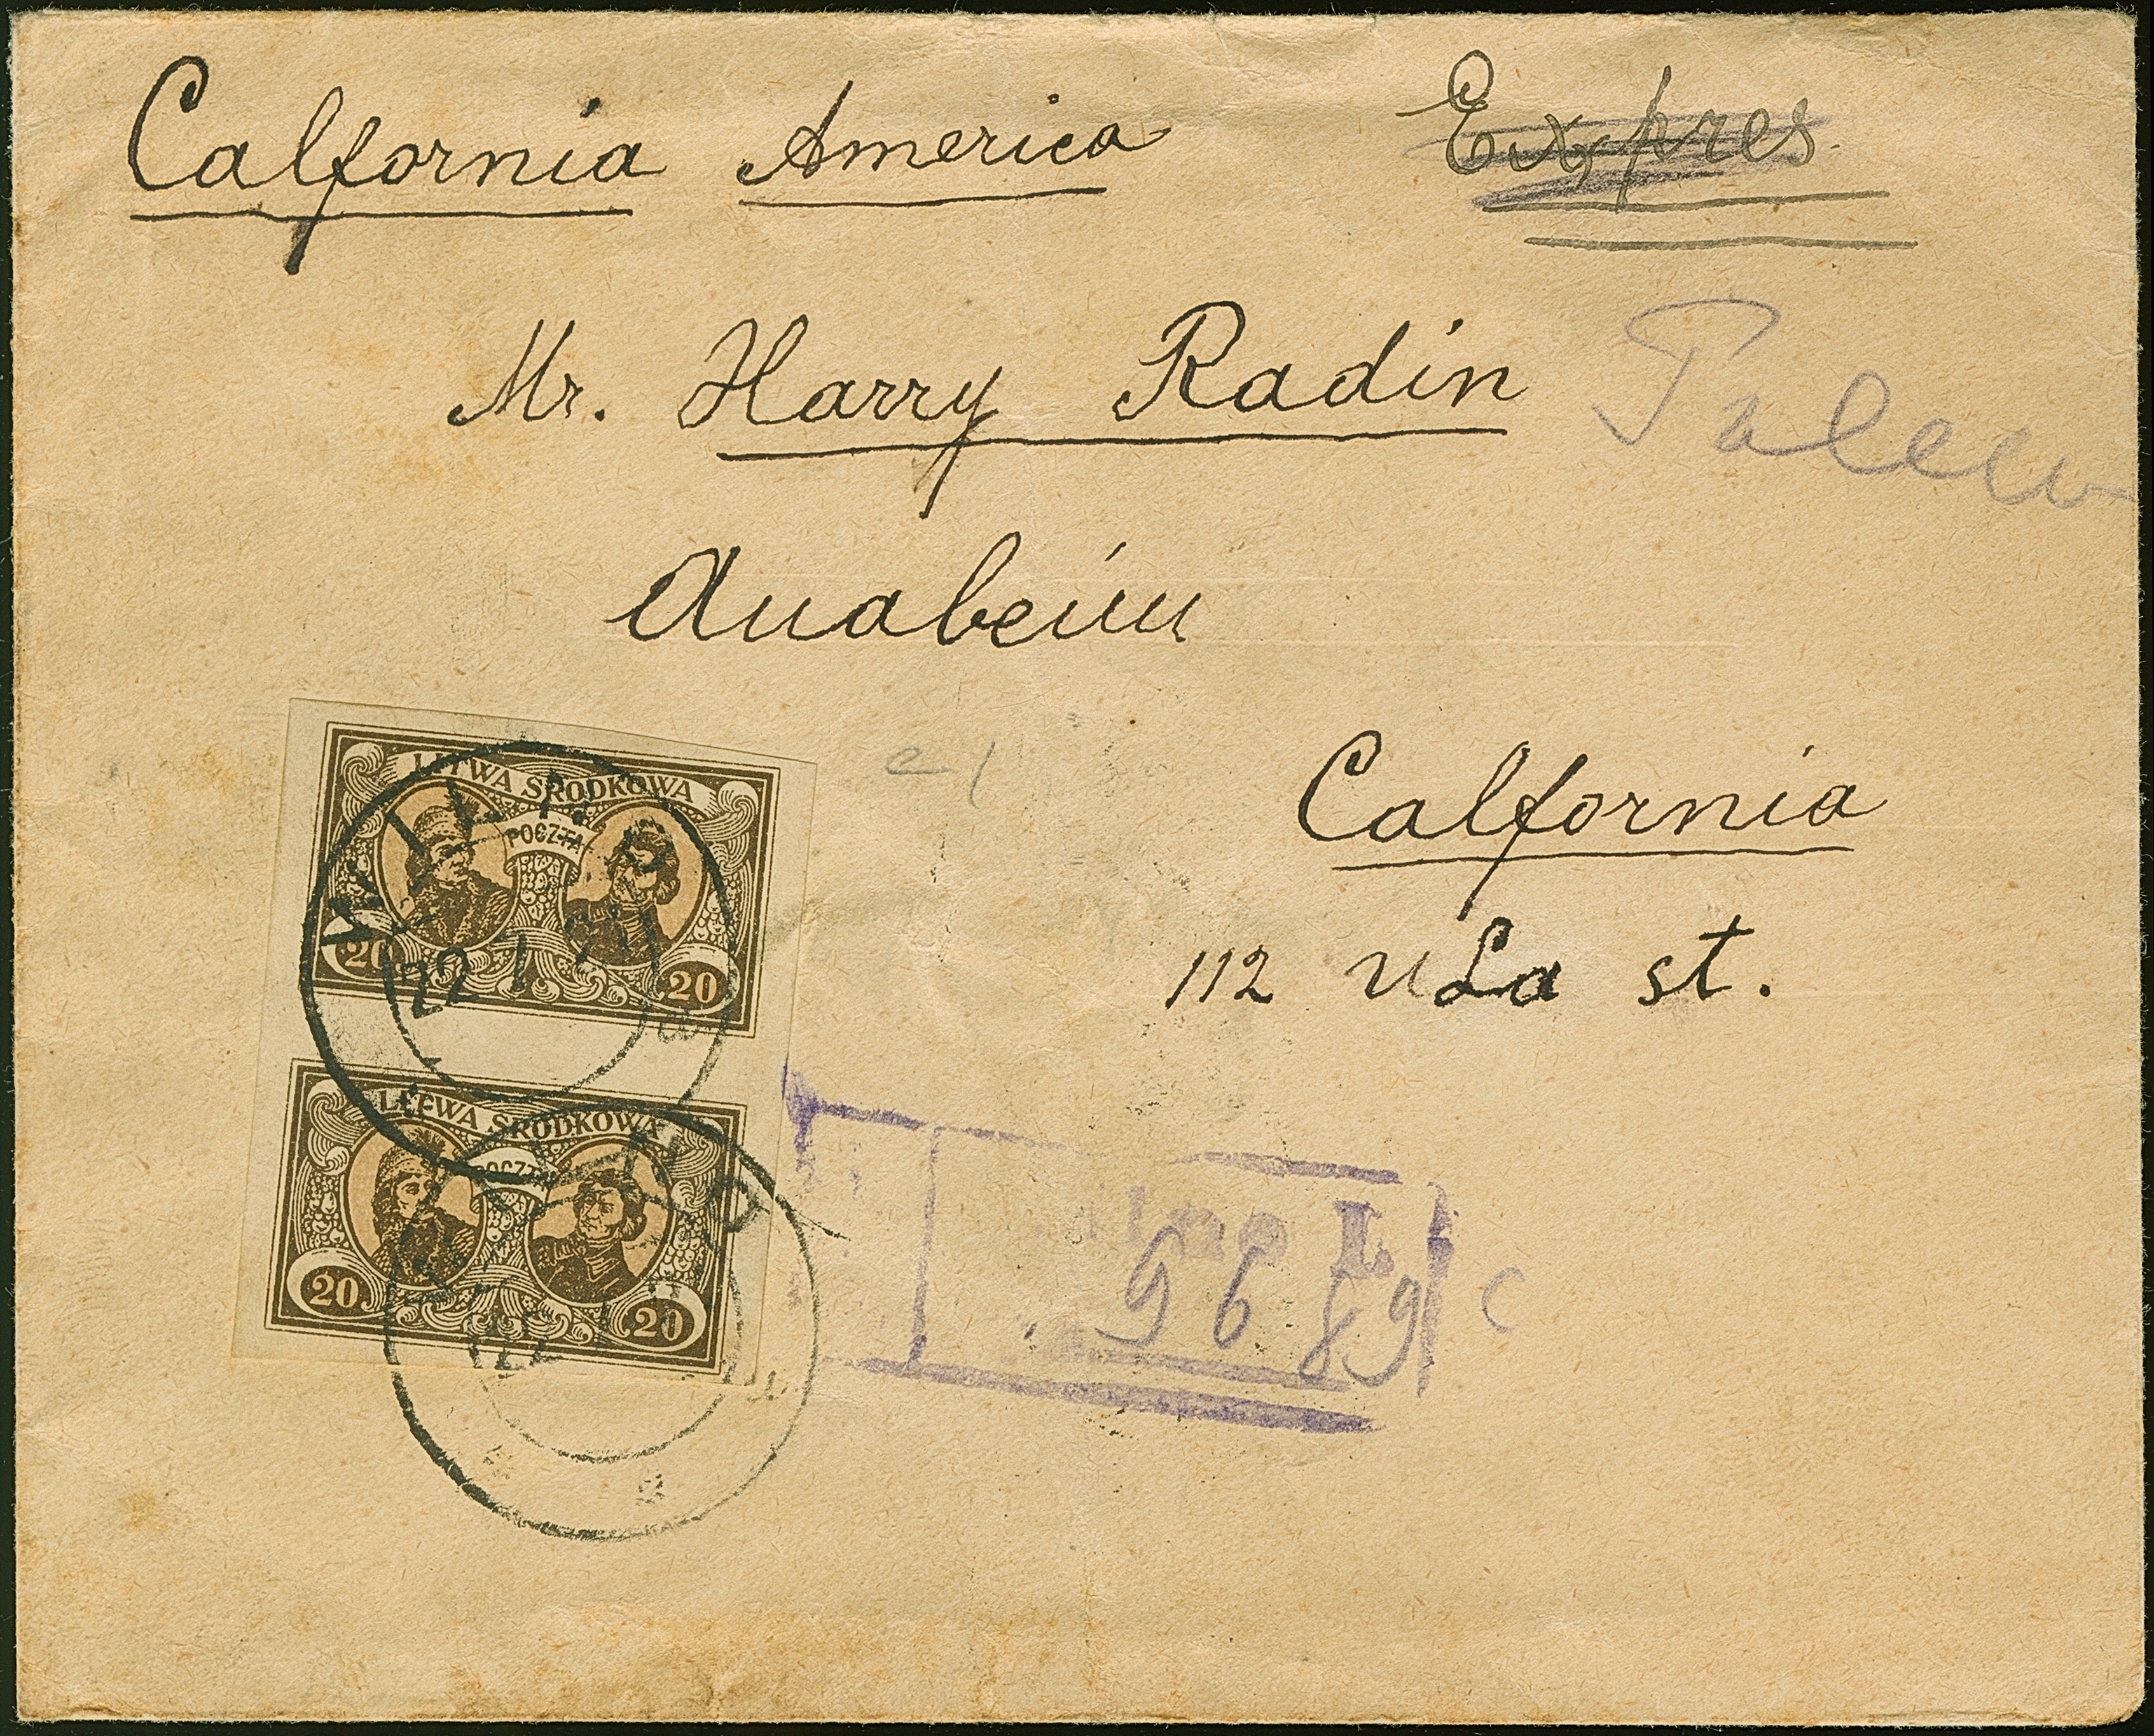 Calfornia America Expres.
Mr. Harry Radin
Anabeim
Calfornia
112 n La st.
LITWA ŚRODKOWA
POCZTA
20 20
WILNO
22 1
LITWA ŚRODKOWA
POCZTA
20 20
9689